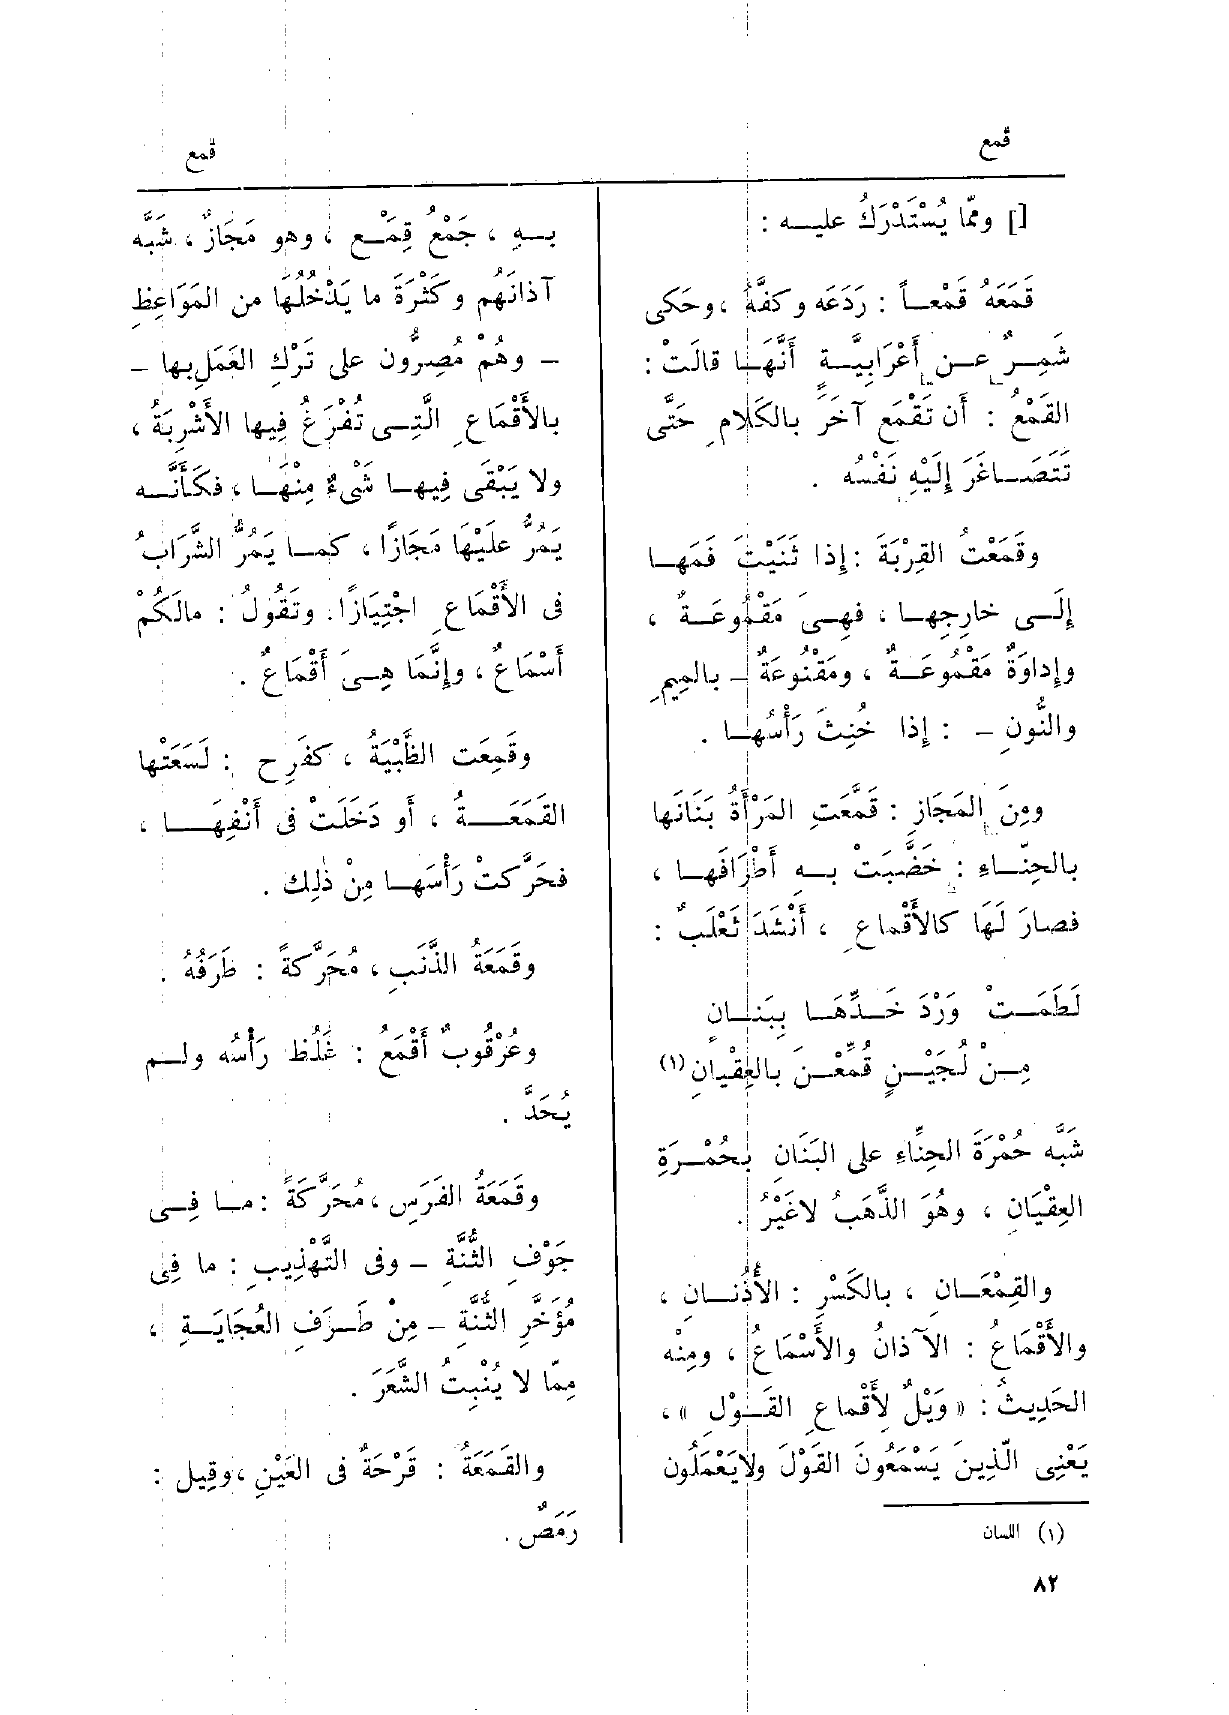 قمع
قمع
[] وممّا يُسْتَدْرَكُ عليـــه :
قَمَعَهُ قَمْعـــاً : رَدَعَه وكَفَّهُ ، وحَكى
شَمِـــرٌ عـــن أَعْرَابِيَّـــةٍ أَنَّهـــا قالَتْ :
القَمْعُ : أَن تَقْمَع آخَرَ بالكَلامِ حَتَّى
تَتَصَـــاغَرَ إِلَيْهِ نَفْسُه .
وقَمَعْتُ القِرْبَةَ : إِذا ثَنَيْتَ فَمَهـــا
إِلَـــى خارِجِهـــا ، فهِـــىَ مَقْمُوعَـــةٌ ،
وإِداوَةٌ مَقْمُوعَـــةٌ ، ومَقْنُوعَةٌ – بالمِيمِ
والنُّونِ – : إِذا خُنِثَ رَأْسُهـــا .
ومِنَ المَجَازِ : قَمَّعَتِ المَرْأَةُ بَنَانَها
بالحِنّـــاءِ : خَضَّبَتْ بـــهِ أَطْرَافَهـــا ،
فصارَ لَهَا كالأَقْماعِ ، أَنْشَدَ ثَعْلَبٌ :
لَطَمَـــتْ وَرْدَ خَـــدِّهَـــا بِبَنـــانٍ
مِـــنْ لُجَيْـــنٍ قُمِّعْـــنَ بالعِقْيانِ (١)
شَبَّه حُمْرَةَ الحِنّاءِ على البَنَانِ بحُمْـــرَةِ
العِقْيَانِ ، وهُوَ الذَّهَبُ لاغَيْرُ .
والقِمْعَـــانِ ، بالكَسْرِ : الأُذُنـــانِ ،
والأَقْمَاعُ : الآذانُ والأَسْمَاعُ ، ومِنْه
الحَدِيثُ : « وَيْلٌ لِأَقْماعِ القَـــوْلِ » ،
يَعْنِى الّذِينَ يَسْمَعُونَ القَوْلَ ولايَعْمَلُون
(١) اللسان
٨٢
بـــهِ ، جَمْعُ قِمْـــع ، وهو مَجَازٌ ، شَبَّه
آذانَهُم وكَثْرَةَ ما يَدْخُلُهَا من المَوَاعِظِ
– وهُمْ مُصِرُّون على تَرْكِ العَمَلِ بها –
بالأَقْمَاعِ الَّتِـــى تُفْرَغُ فِيها الأَشْرِبَةُ ،
ولا يَبْقَى فِيهـــا شَىْءٌ مِنْهَـــا ، فكَأَنَّـــه
يَمُرُّ عَلَيْهَا مَجَازًا ، كمـــا يَمُرُّ الشَّرَابُ
فى الأَقْمَاعِ اجْتِيَازًا. وتَقُولُ : مالَكُمْ
أَسْمَاعٌ ، وإِنَّمَا هِـــىَ أَقْمَاعٌ .
وقَمِعَت الظَّبْيَةُ ، كفَرِح : لَسَعَتْها
القَمَعَـــةُ ، أَو دَخَلَتْ فى أَنْفِهَـــا ،
فحَرَّكتْ رَأْسَهـــا مِنْ ذٰلِك .
وقَمَعَةُ الذَّنَبِ ، مُحَرَّكةً : طَرَفُهُ .
وعُرْقُوبٌ أَقْمَعُ : غَلُظ رَأْسُه ولـــم
يُحَدَّ .
وقَمَعَةُ الفَرَسِ ، مُحَرَّكَةً : مـــا فِـــى
جَوْفِ الثُّنَّةِ – وفى التَّهْذِيبِ : ما فِى
مُؤَخَّرِ الثُّنَّةِ – مِنْ طَـــرَفِ العُجَايَـــةِ ،
مِمّا لا يُنْبِتُ الشَّعَرَ .
والقَمَعَةُ : قَرْحَةٌ فى العَيْنِ ، وقِيل :
رَمَصٌ .